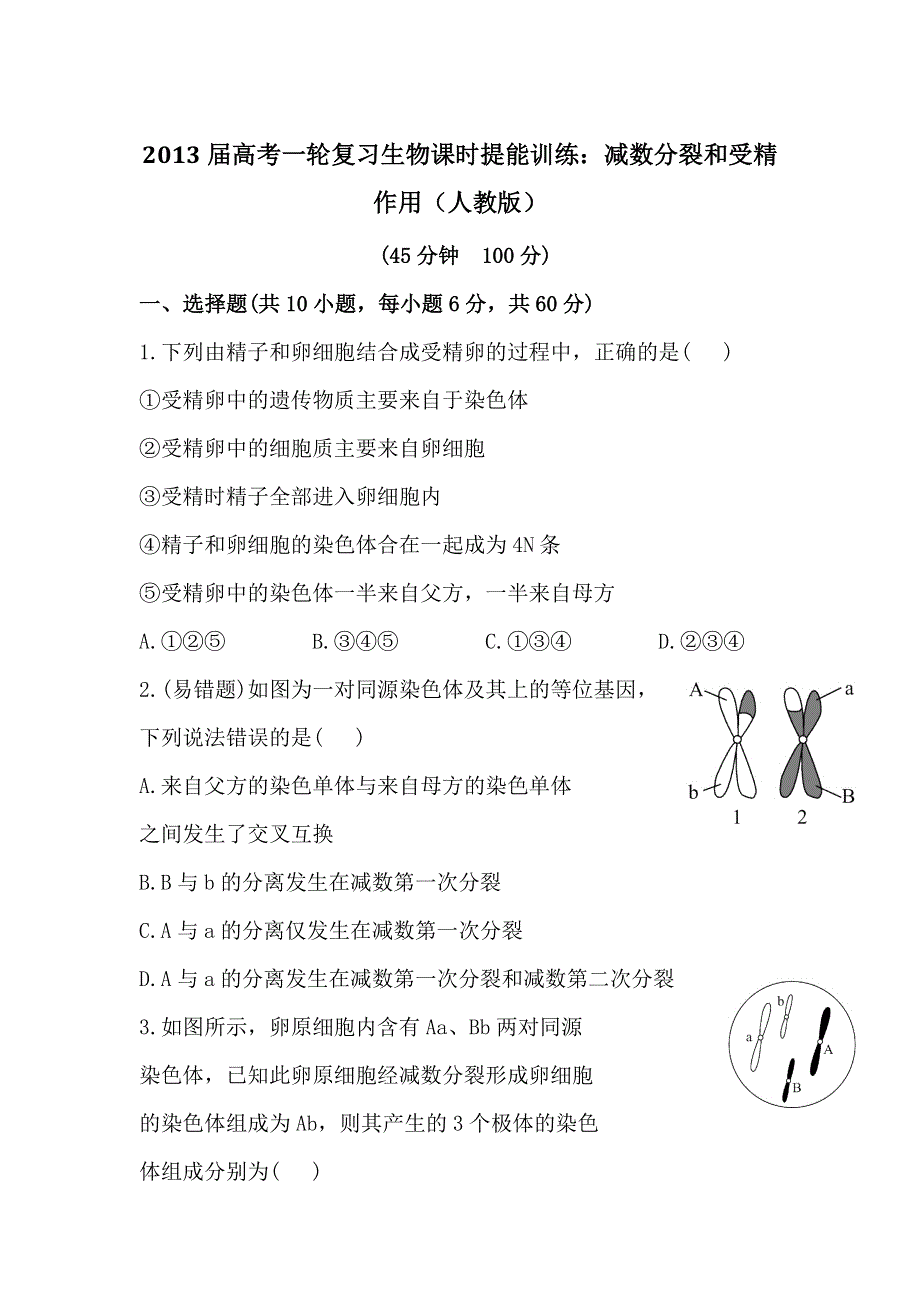 2013届高考一轮复习生物课时提能训练：减数分裂和受精
作用（人教版）
(45分钟  100分)
一、选择题(共10小题，每小题6分，共60分)
1.下列由精子和卵细胞结合成受精卵的过程中，正确的是(  )
①受精卵中的遗传物质主要来自于染色体
②受精卵中的细胞质主要来自卵细胞
③受精时精子全部进入卵细胞内
④精子和卵细胞的染色体合在一起成为4N条
⑤受精卵中的染色体一半来自父方，一半来自母方
A.①②⑤  B.③④⑤  C.①③④  D.②③④
2.(易错题)如图为一对同源染色体及其上的等位基因，
下列说法错误的是(  )
A a
b B
1 2
A.来自父方的染色单体与来自母方的染色单体
之间发生了交叉互换
B.B与b的分离发生在减数第一次分裂
C.A与a的分离仅发生在减数第一次分裂
D.A与a的分离发生在减数第一次分裂和减数第二次分裂
3.如图所示，卵原细胞内含有Aa、Bb两对同源
染色体，已知此卵原细胞经减数分裂形成卵细胞
的染色体组成为Ab，则其产生的3个极体的染色
体组成分别为(  )
b
a
A
B